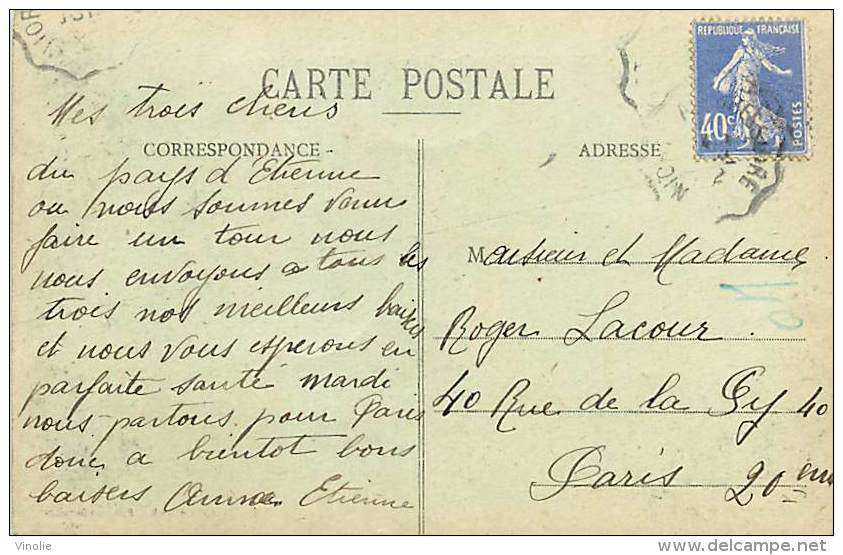 RÉPUBLIQUE FRANÇAISE
40c
POSTES
CARTE POSTALE
CORRESPONDANCE
ADRESSE
Mes trois chers
du pays d'Etienne
ou nous sommes venu
faire un tour nous
nous envoyons a tous les
trois nos meilleurs baisers
et nous vous esperons en
parfaite santé mardi
nous partons pour Paris
donc a bientot bons
baisers Anna Etienne
Monsieur et Madame
Roger Lacour.
40 Rue de la Py 40
Paris 20 eme
Vinolie
www.delcampe.net